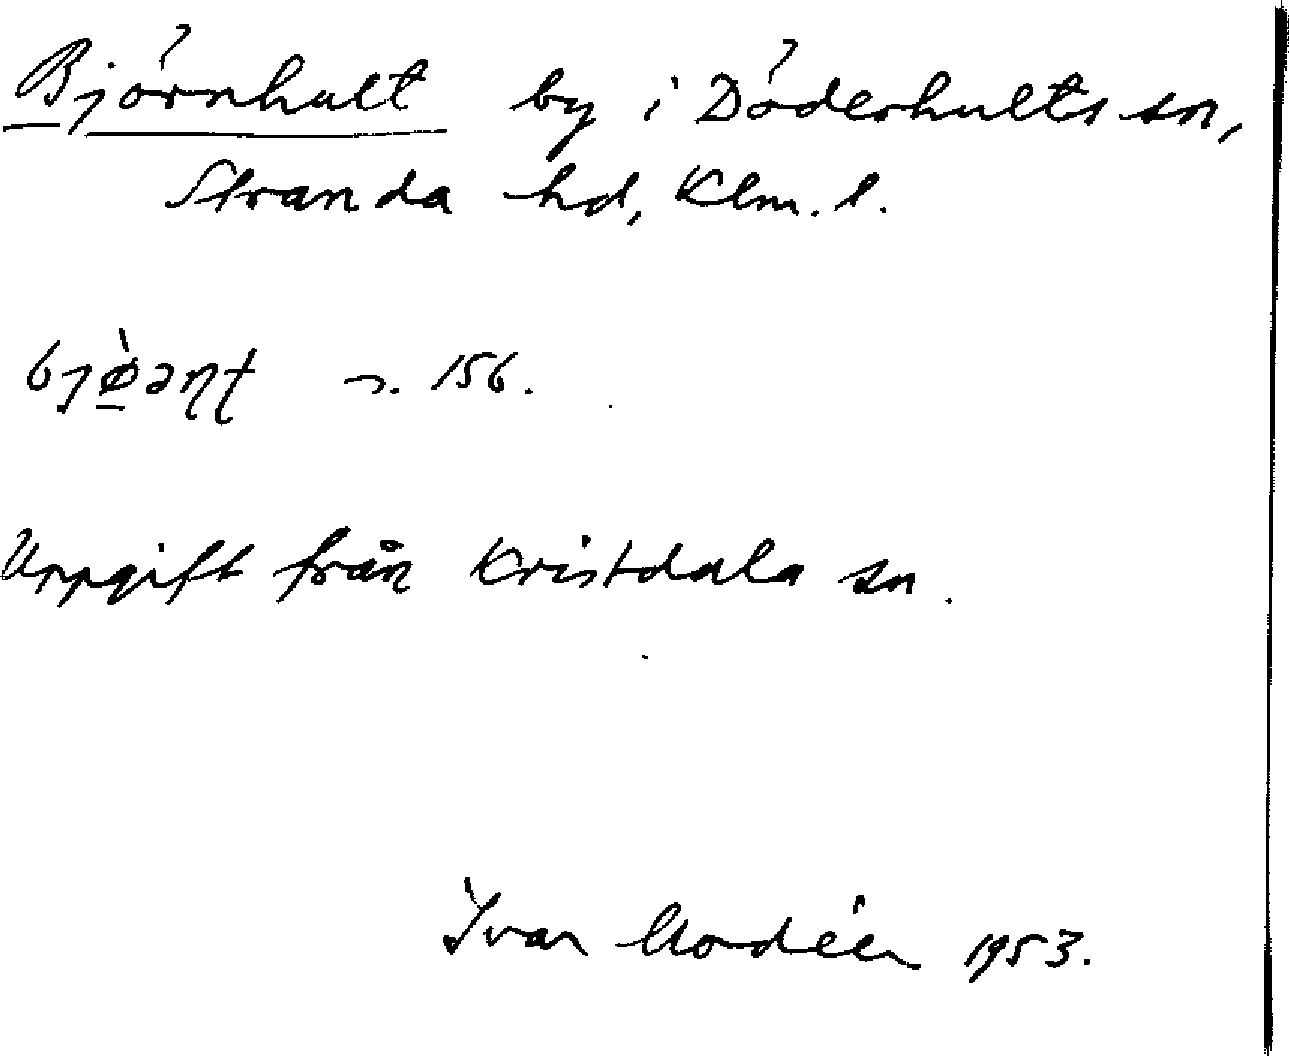 Björnhult by i Döderhults sn,
Stranda hd, Klm. l.
156.
Uppgift från Kristdala sn.
Ivar Modéer 1953.